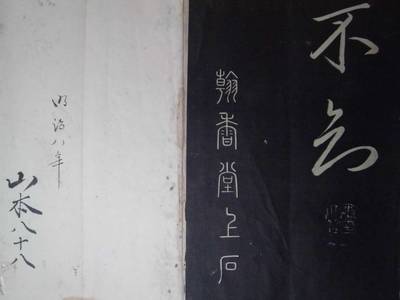 不
翰香堂上石
明治八年
山本八十八